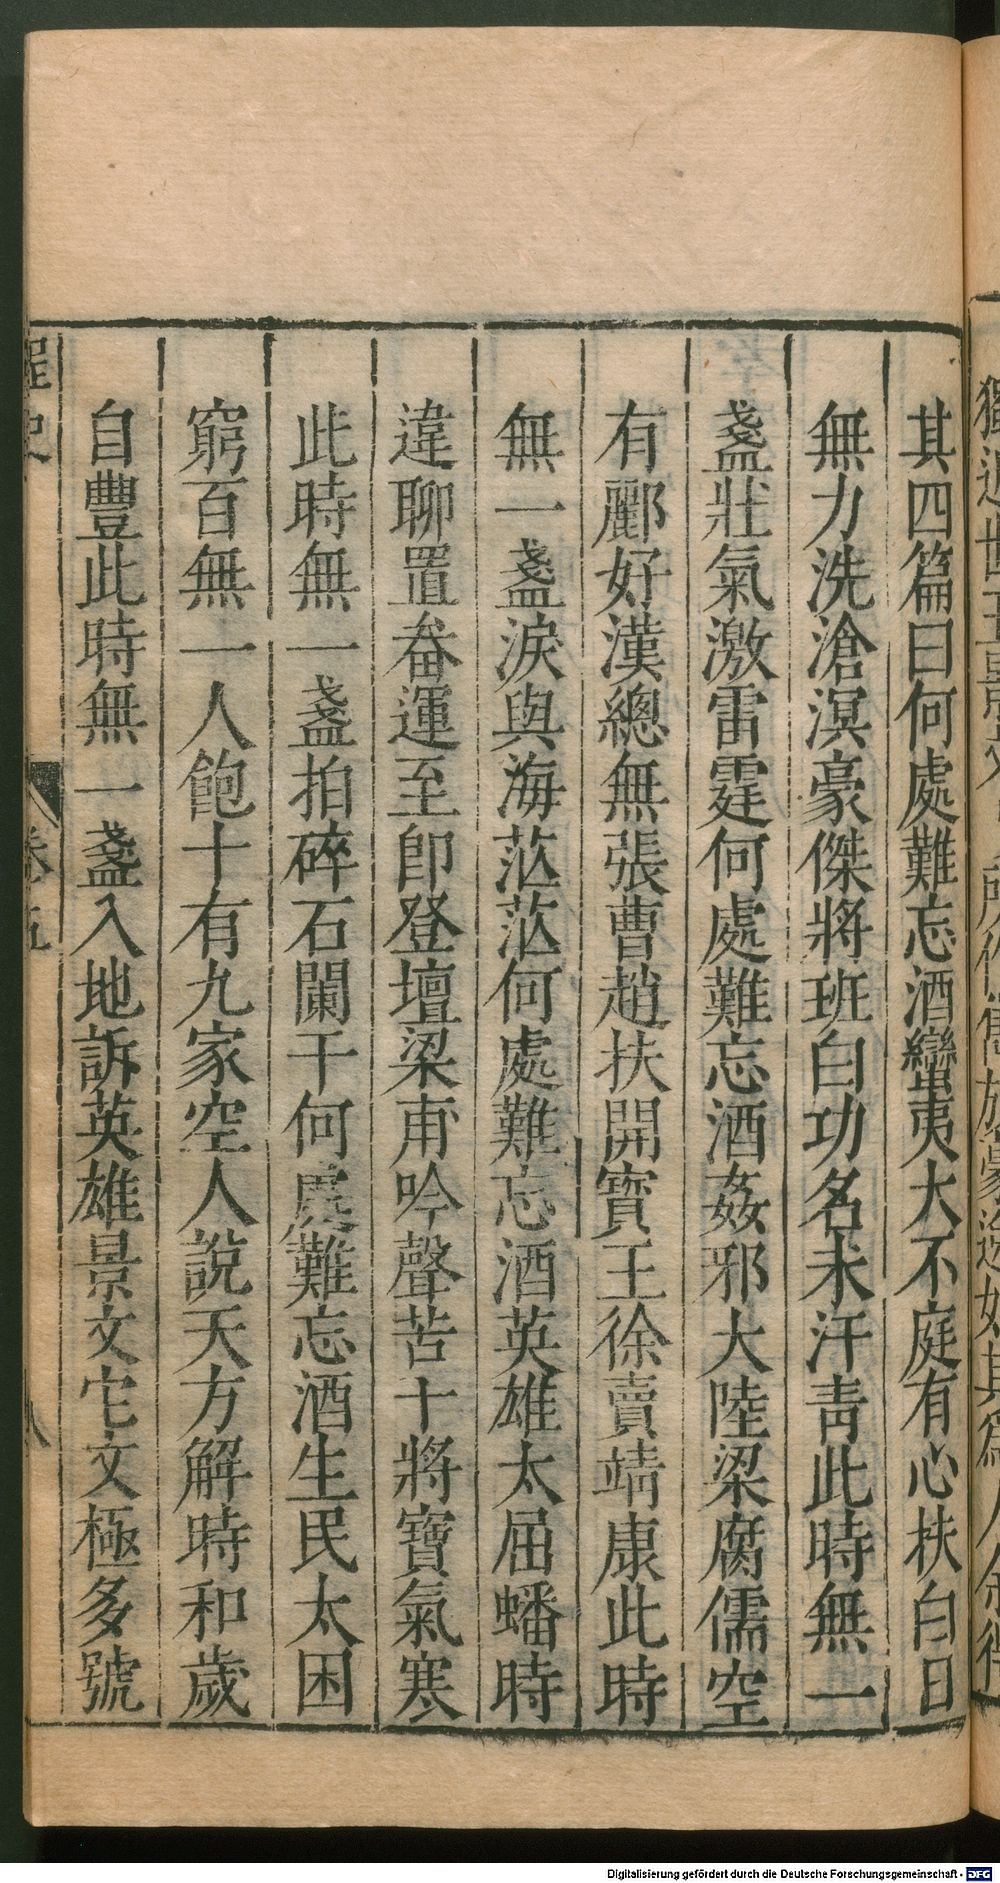 其四篇曰何處難忘酒蠻夷大不庭有心扶白日
無力洗滄溟豪傑將班白功名未汗靑此時無一
盞壯氣激雷霆何處難忘酒姦邪大陸梁腐儒空
有酈好漢總無張曹趙扶開寳王徐賣靖康此時
無一盞淚與海茫茫何處難忘酒英雄太屈蟠時
違聊置畚運至卽登壇梁甫吟聲苦十將寶氣寒
此時無一盞拍碎石闌干何處難忘酒生民太困
窮百無一人飽十有九家空人說天方解時和歲
自豐此時無一盞入地訴英雄景文它文極多號
桯史
卷五
八
Digitalisierung gefördert durch die Deutsche Forschungsgemeinschaft - DFG